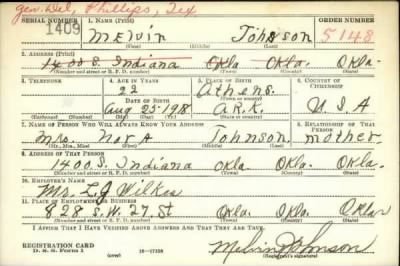 Gen. Del, Phillips, Tex
SERIAL NUMBER 1. NAME (Print) ORDER NUMBER
1409 Melvin Johnson 5148
(First) (Middle) (Last)
2. ADDRESS (Print)
1400 S. Indiana Okla Okla. Okla.
(Number and street or R. F. D. number) (Town) (County) (State)
3. TELEPHONE 4. AGE IN YEARS 5. PLACE OF BIRTH 6. COUNTRY OF CITIZENSHIP
22 Athens
DATE OF BIRTH (Town or county)
Aug 25-1918 ARK. U.S.A
(Exchange) (No.) (Mo.) (Day) (Yr.) (State or country)
7. NAME OF PERSON WHO WILL ALWAYS KNOW YOUR ADDRESS 8. RELATIONSHIP OF THAT PERSON
Mrs. Nora Johnson mother
(Mr., Mrs., Miss) (First) (Middle) (Last)
9. ADDRESS OF THAT PERSON
1400 S. Indiana Okla. Okla. Okla.
(Number and street or R. F. D. number) (Town) (County) (State)
10. EMPLOYER'S NAME
Mr. L.J Wilken
11. PLACE OF EMPLOYMENT OR BUSINESS
828 S.W. 27 St Okla. Okla. Okla
(Number and street or R. F. D. number) (Town) (County) (State)
I AFFIRM THAT I HAVE VERIFIED ABOVE ANSWERS AND THAT THEY ARE TRUE.
REGISTRATION CARD
D. S. S. Form 1 (over) 16-17105 Melvin Johnson
(Registrant's signature)